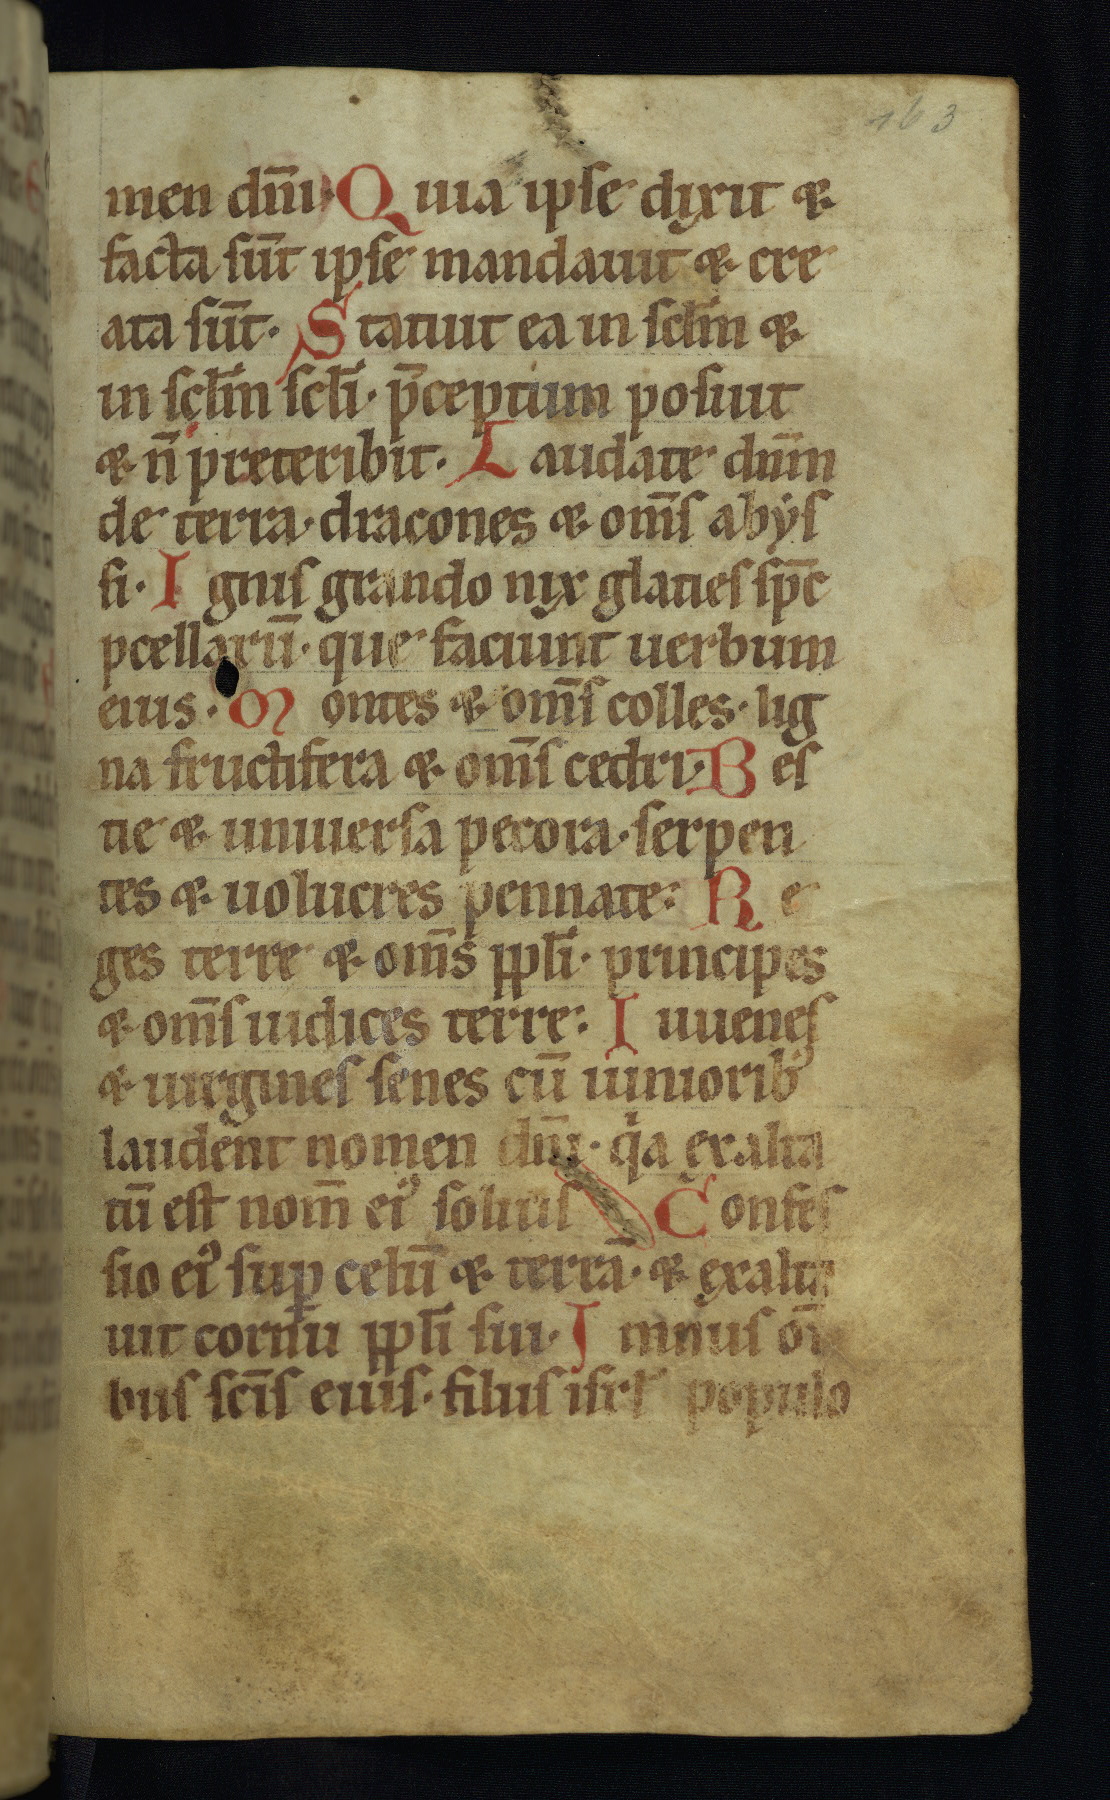 163
men dn̄i· Quia ipse dixit &
facta sūt ipse mandauit & cre
ata sūt· Statuit ea in sclm̄ &
in sclm̄ scl̄i· p̄ceptum posuit
& n̄ preteribit· Laudate dn̄m
de terra· dracones & om̄s abẏs
si· Ignis grando nix glacies sp̄c
pcellarū· que faciunt uerbum
eius· Montes & om̄s colles· lig
na fructifera & om̄s cedri· Bes
tie & uniuersa pecora· serpen
tes & uolucres pennate: Re
ges terre & om̄s ppl̄i· principes
& om̄s iudices terre: Iuuenes
& uirgines senes cū iuniorib⁹
laudent nomen dn̄i· qͥa exalta
tū est nom̄ ei⁹ solius Confes
sio ei⁹ sup celū & terrā· & exalta
uit cornu ppl̄i sui· Imnus om̄i
bus scīs eius· filiis isrl̄ populo